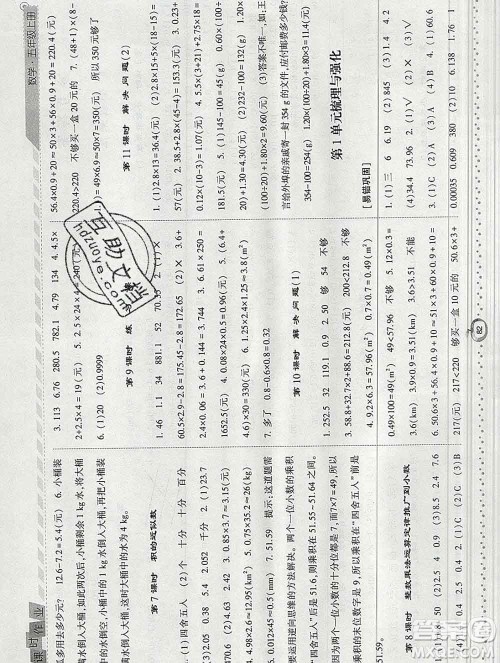 课时作业
数学·五年级上册
瓜多用去多少元? 12.6-7.2=5.4(元) 6. 小桶装
满水倒入大桶,如此两次后,小桶剩余1 kg水,将大
桶中的水倒空,小桶中的1 kg水倒入大桶,再把小桶装
满水倒入大桶,这时大桶中的水为4 kg。
第7课时 积的近似数
四舍五入 (2)个 十分 十分 百分
2.05 0.38 5.4 2.052 千分 2. (1)23.7
(2)4.63 2.42 3. 0.85×3.7≈3.15(元)
4. 4.98×2.6≈12.95(km²) 5. 0.75×35.2≈26(kg)
6. 0.012×45≈0.5(mm) 7. 51.59 提示:这道题需
要运用逆向思维的方法解决。两个一位小数的乘积
"四舍五入"后是51.6,则乘积在51.55~51.64之间。
因为两个一位小数的十分位都是7,而7×7=49,所以
乘积的末位数字是9,所以乘积在"四舍五入"前是
51.59。
第8课时 整数乘法运算定律推广到小数
50 (2)2.5 4 0.9 (3)8.5 2.4 7.6
0.4 2.5 0.4 2. (1)C (2)C (3)B
3. 113 6.76 280.5 782.1 4.79 134 4. 4.5×
2+2.5×4=19(元) 5. 2.5×24×4=240(元)
6. (1)20 (2)0.9999
第9课时 练
1. 46 1.1 34 881.1 52 70.35 2. (1)×
60.5×2.9-2.8=175.45-2.8=172.65 (2)× 3.6+
2.4×0.06=3.6+0.144=3.744 3. 6.61×250=
1652.5(元) 4. 0.08×24×0.5=0.96(元) 5. (6.4+
4.6)×30=330(元) 6. 1.25×2.4×1.25≈3.8(m²)
7. 多了 0.8-0.6×0.8=0.32
第10课时 解决问题(1)
1. 252.5 32 119.1 0.9 2. 50 够 54 不够
3. 58.8+32.7×2+88.6=212.8(元) 200<212.8 不够
4. 9.2×6.3=57.96(m²) 0.7×0.7=0.49(m²)
0.49×100=49(m²) 49<57.96 不够 5. 12×0.3=
3.6(km) 3.9×0.9=3.51(km) 3.6>3.51 不能
6. 50.6×3+56.4×0.9+10≈51×3+60×0.9+10=
217(元) 217<220 够买一盒10元的 50.6×3+
56.4×0.9+20≈50×3+56×0.9+20=220.4(元)
220.4>220 不够买一盒20元的 7. (48+1)×(8-
1)=49×6.9≈50×7=350(元) 所以350元够了
第11课时 解决问题(2)
1. (1)2.8×13=36.4(元) (2)2.8×15+5×(18-15)=
57(元) 2. 38.5+2.8×(45-4)=153.3(元) 3. 0.23+
0.12×(10-3)=1.07(元) 4. 5.5×(3+21)+2.75×18=
181.5(元) 5. (1)145-100=45(g) 0.60×(100÷
20)+1.30=4.30(元) (2)232-100=132(g) 1.20×
(100÷20)+1.80×2=9.60(元) (3)答案不唯一,如,王
宫给外埠的亲戚寄一封354 g的文件,应付邮费多少钱?
354-100=254(g) 1.20×(100÷20)+1.80×3=11.4(元)
第1单元梳理与强化
[易错巩固]
1. (1)三 6 6.19 (2)845 (3)1.4 4.2
(4)34.4 73.96 2. (1)√ (2)× (3)√
3. (1)C (2)A (3)A (4)B 4. (1)60.6
0.00035 0.609 380 (2)10 6.138 1.76 1
82